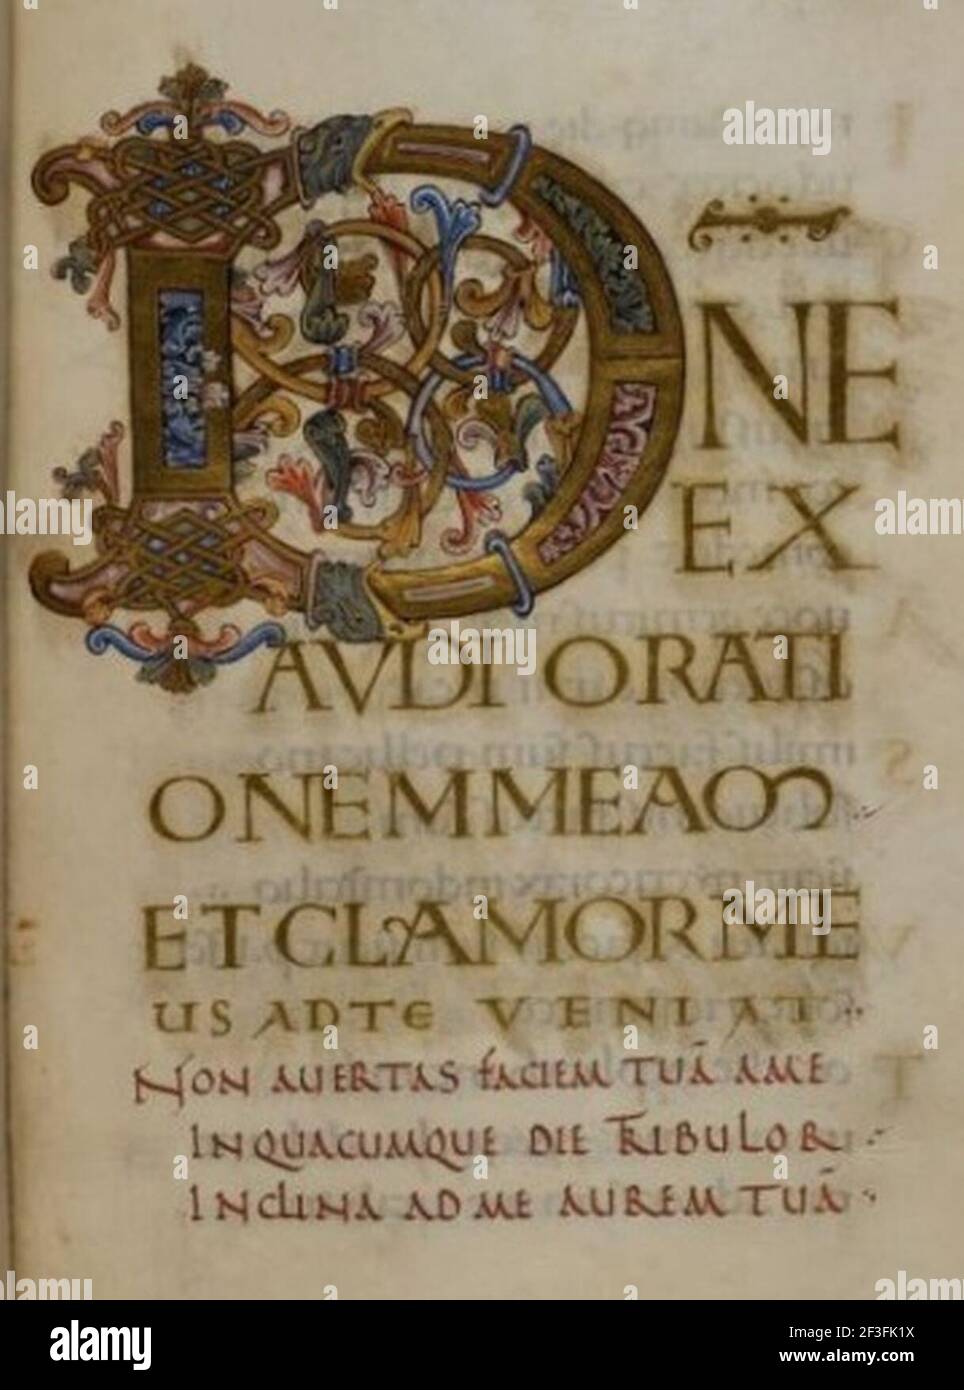 D̄NE
EX
AVDI ORATI
ONEM MEAM
ET CLAMOR ME
US AD TE VENIAT
NON AVERTAS FACIEM TUĀ A ME
IN QUACUMQUE DIE TRIBULOR
INCLINA AD ME AUREM TUĀ
alamy
Image ID: 2F3FK1X
www.alamy.com